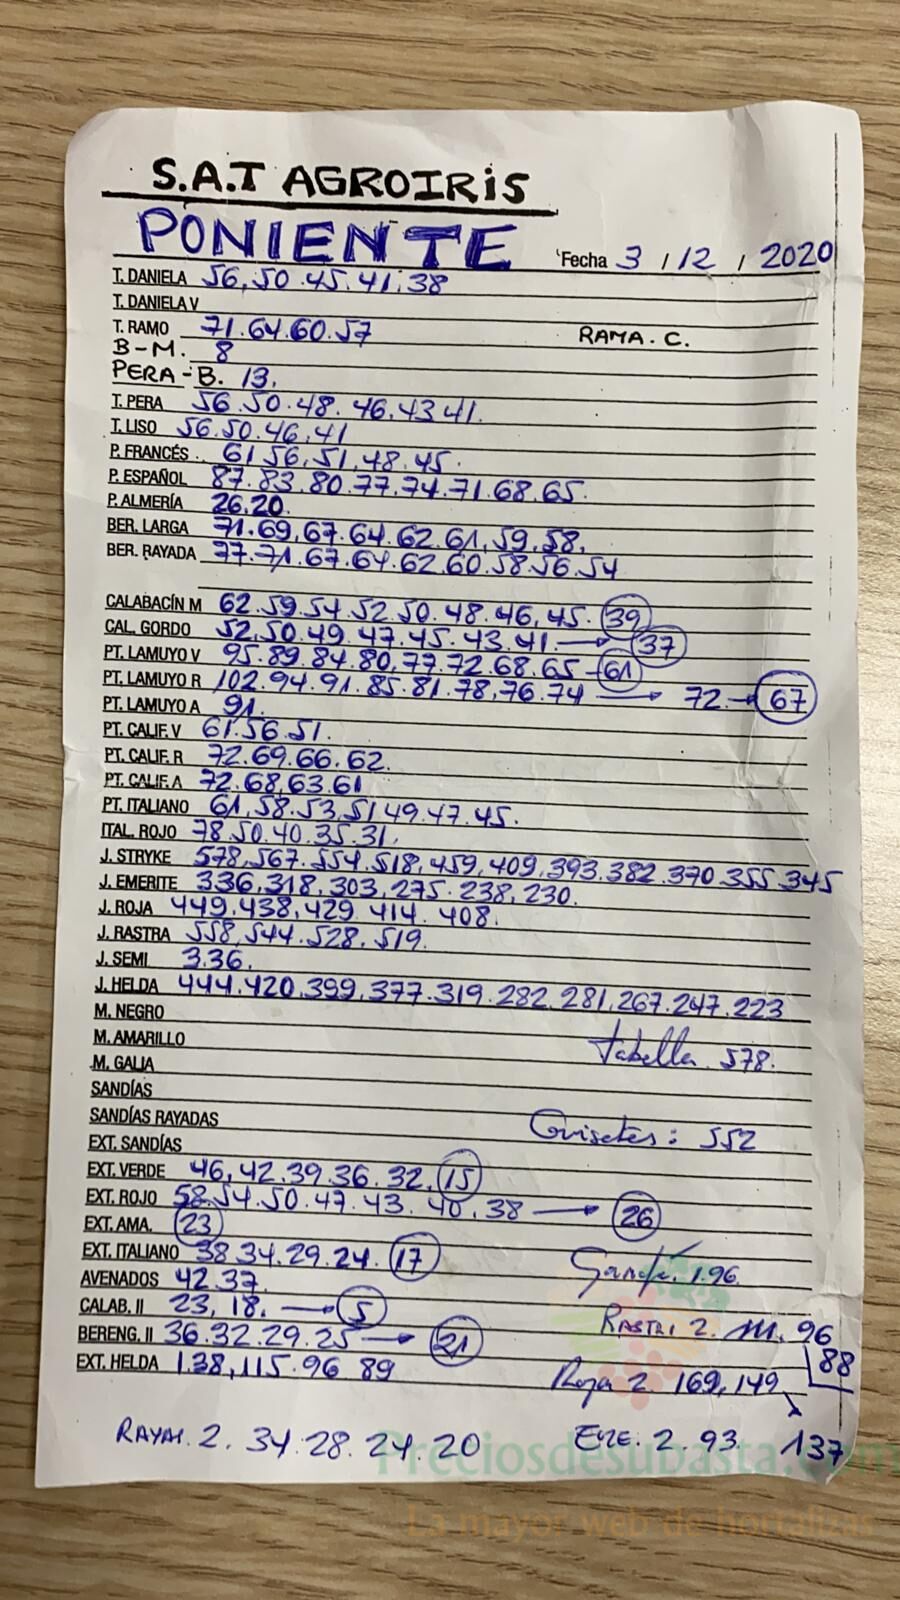 S.A.T AGROIRIS
PONIENTE
Fecha 3 / 12 / 2020
T. DANIELA 56,50.45.41.38
T. DANIELA V
T. RAMO 71.64.60.57 RAMA.C.
B-M. 8
PERA-B. 13.
T. PERA 56.50.48.46.43 41.
T. LISO 56.50.46.41
P. FRANCÉS. 61 56,51,48.45.
P. ESPAÑOL 87.83.80.77.74.71.68.65.
P. ALMERÍA 26.20.
BER. LARGA 71.69,67.64.62.61,59,58.
BER. RAYADA 77.71.67.64.62.60.58.56.54
CALABACÍN M 62.59.54.52.50.48.46,45. 39
CAL. GORDO 52,50.49.47.45.43.41. → 37
PT. LAMUYO V 95.89.84.80,77.72.68.65 - 61
PT. LAMUYO R 102.94.91.85.81.78,76.74 → 72 → 67
PT. LAMUYO A 91.
PT. CALIF. V 61.56.51.
PT. CALIF. R 72.69.66.62.
PT. CALIF. A 72.68,63.61
PT. ITALIANO 61,58.53,51 49.47.45.
ITAL. ROJO 78.50.40.35.31.
J. STRYKE 578,567.554.518,459,409,393.382.370.355.345
J. EMERITE 336,318,303,275.238,230.
J. ROJA 449,438,429.414.408.
J. RASTRA 558,544.528.519.
J. SEMI 3.36.
J. HELDA 444.420,399,377.319.282.281,267.247.223
M. NEGRO
M. AMARILLO tabella 578.
M. GALIA
SANDÍAS
SANDÍAS RAYADAS Guisetes: 552
EXT. SANDÍAS
EXT. VERDE 46,42.39.36.32. 15
EXT. ROJO 58.54.50.47.43.40.38 → 26
EXT. AMA. 23
EXT. ITALIANO 38.34.29.24. 17
AVENADOS 42.37. 1.96.
CALAB. II 23, 18. → 5
RASTRI 2. 111. 96
BERENG. II 36.32.29.25 → 21
88
EXT. HELDA 138,115.96 89 Roja 2. 169,149
137
RAYAI.2.34.28.24.20 2.93.
Preciosdesubasta.com
La mayor web de hortalizas